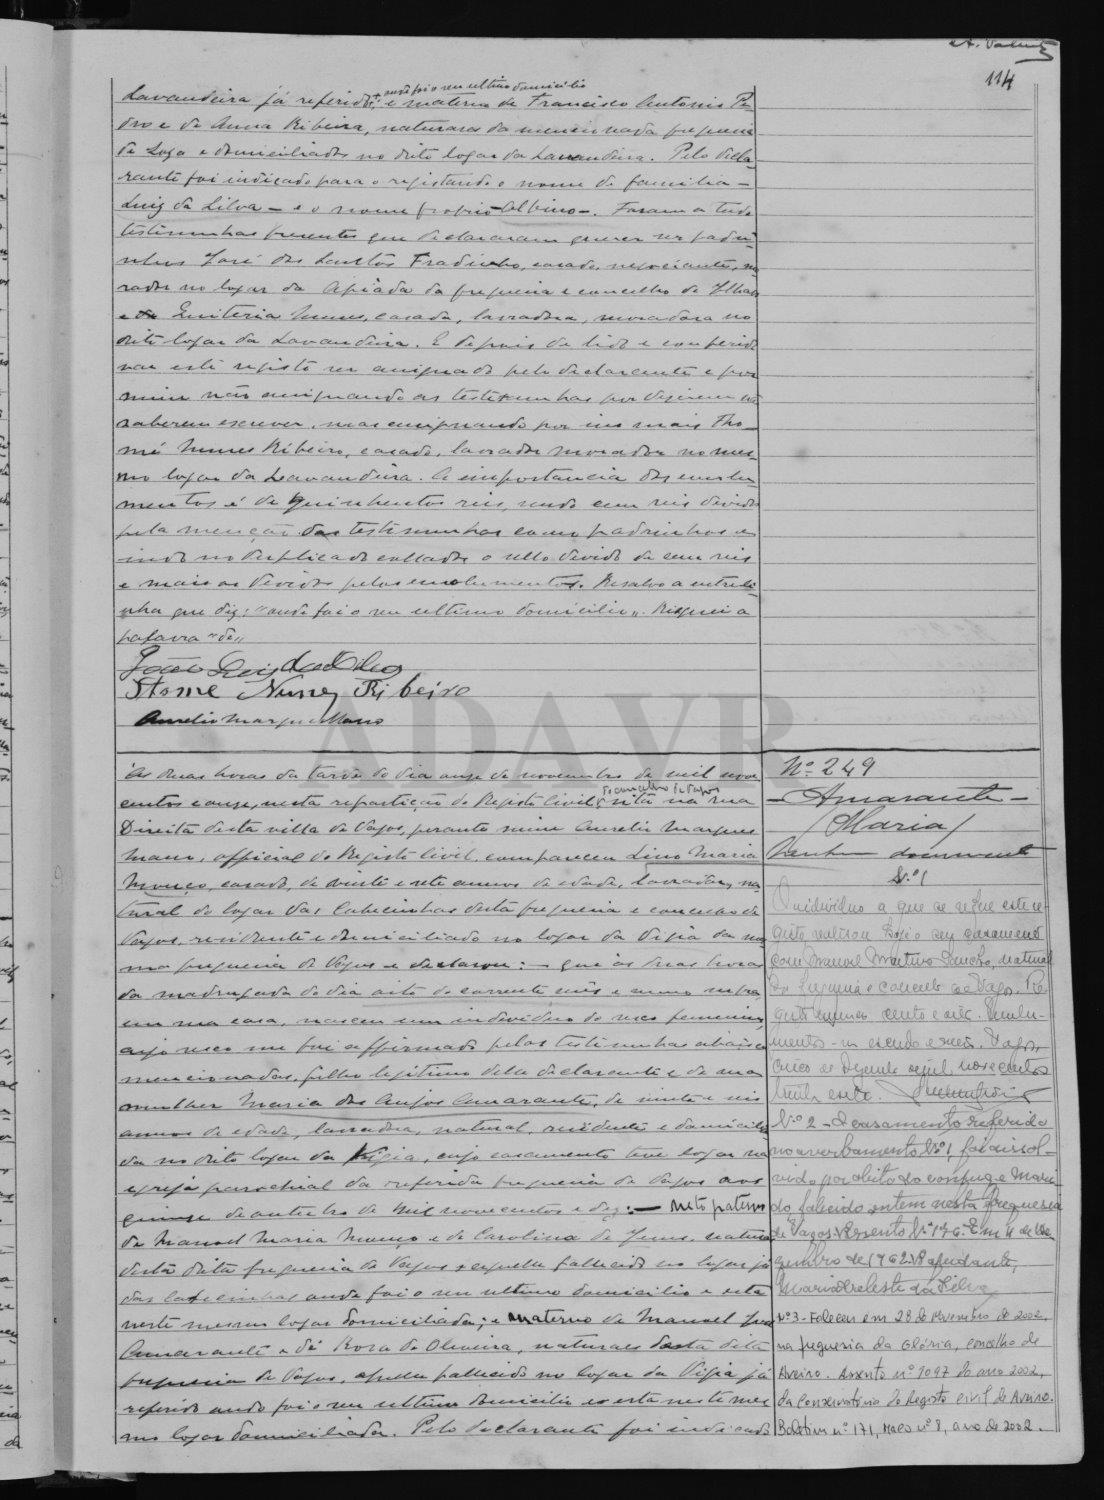 114
onde foi o seu ultimo domicilio
Lavandeira já referido, e materno de Francisco Antonio Pe-
dro e de Anna Ribeira, naturaes da mencionada freguesia
de Soza e domiciliados no dito logar da Lavandeira. Pelo decla-
rante foi indicado para o registando o nome de familia —
Luiz da Silva — e o nome proprio — Albino —. Foram a tudo
testimunhas presentes que declararam querer ser padri-
nhos José dos Santos Fradinho, casado, negociante, mo-
rador no logar da da freguesia e concelho de Ilhavo
e de Quiteria Nunes, casada, lavradora, moradora no
dito logar da Lavandeira. E depois de lido e conferido
vae este registo ser assignado pelo declarante e por
mim não assignando as testemunhas por dizerem não
saberem escrever, mas assignando por ellas mais Tho-
mé Nunes Ribeiro, casado, lavrador morador no mes-
mo logar da Lavandeira. A importancia dos emolu-
mentos é de quinhentos reis, sendo cem reis devidos
pela menção das testimunhas como padrinhos e
indo no duplicado collados o sello devido de cem reis
e mais os devidos pelos emolumentos. Resalvo a entreli-
nha que diz: "onde foi o seu ultimo domicilio". Risquei a
palavra "de"
João Luiz da Silva
Thome Nunes Ribeiro
Aurelio Marques Mano
ADAVR
As duas horas da tarde do dia onze de novembro de mil nove
centos e onze, nesta repartição do Registo Civil, sita na rua
Direita desta villa de Vagos, perante mim Aurelio Marques
Mano, official do Registo civil, compareceu Lino Maria
casado, de vinte e sete annos de edade, lavrador, na-
tural do logar das desta freguesia e concelho de
Vagos, residente e domiciliado no logar da Vigia da mes-
ma freguesia de Vagos e declarou: — que ás duas horas
da madrugada do dia oito do corrente mês e anno
em sua casa, nasceu um individuo do sexo feminino,
cujo sexo me foi affirmado pelas testimunhas abaixo
mencionadas, filho legitimo dele declarante e de sua
mulher Maria dos Anjos Amarante, de vinte e seis
annos de edade, lavradora, natural, residente e domicilia-
da no dito logar da Vigia, cujo casamento teve logar na
egreja parochial da referida freguesia de Vagos aos
quinze de outubro de mil novecentos e dez: — neto paterno
de Manoel Maria e de Carolina de Jesus, naturaes
desta dita freguesia de Vagos e aquelle fallecido no logar já
das onde foi o seu ultimo domicilio e esta
neste mesmo logar domiciliada; e materno de Manoel
Amarante e de Rosa de Oliveira, naturaes desta dita
freguesia de Vagos, aquelle fallecido no logar da Vigia já
referido onde foi o seu ultimo domicilio e esta neste mes-
mo logar domiciliada. Pelo declarante foi indicado
Nº 249
— Amarante —
/ Maria /
Nenhum documento
Nº 1
O individuo a que se refere este re-
gisto realisou hoje o seu casamento
com Manoel Martins natural
da freguesia e concelho de Vagos. Re-
gisto numero cento e seis. Emolu-
mentos - um escudo e
de Dezembro de mil novecentos
trinta e
Nº 2 - O casamento referido
no averbamento Nº 1, foi dissol-
vido por óbito do conjuge mari-
do, falecido ontem nesta freguesia
de Vagos. Assento Nº 176. Em 11 de De-
zembro de 1962. O ajudante,
Maria Celeste da Silva
Nº 3 - Faleceu em 28 de Novembro de 2002,
na freguesia da Glória, concelho de
Aveiro. Assento nº 1097 do ano 2002,
da Conservatória do Registo Civil de Aveiro.
Boletim nº 171, Maço nº 8, ano de 2002.